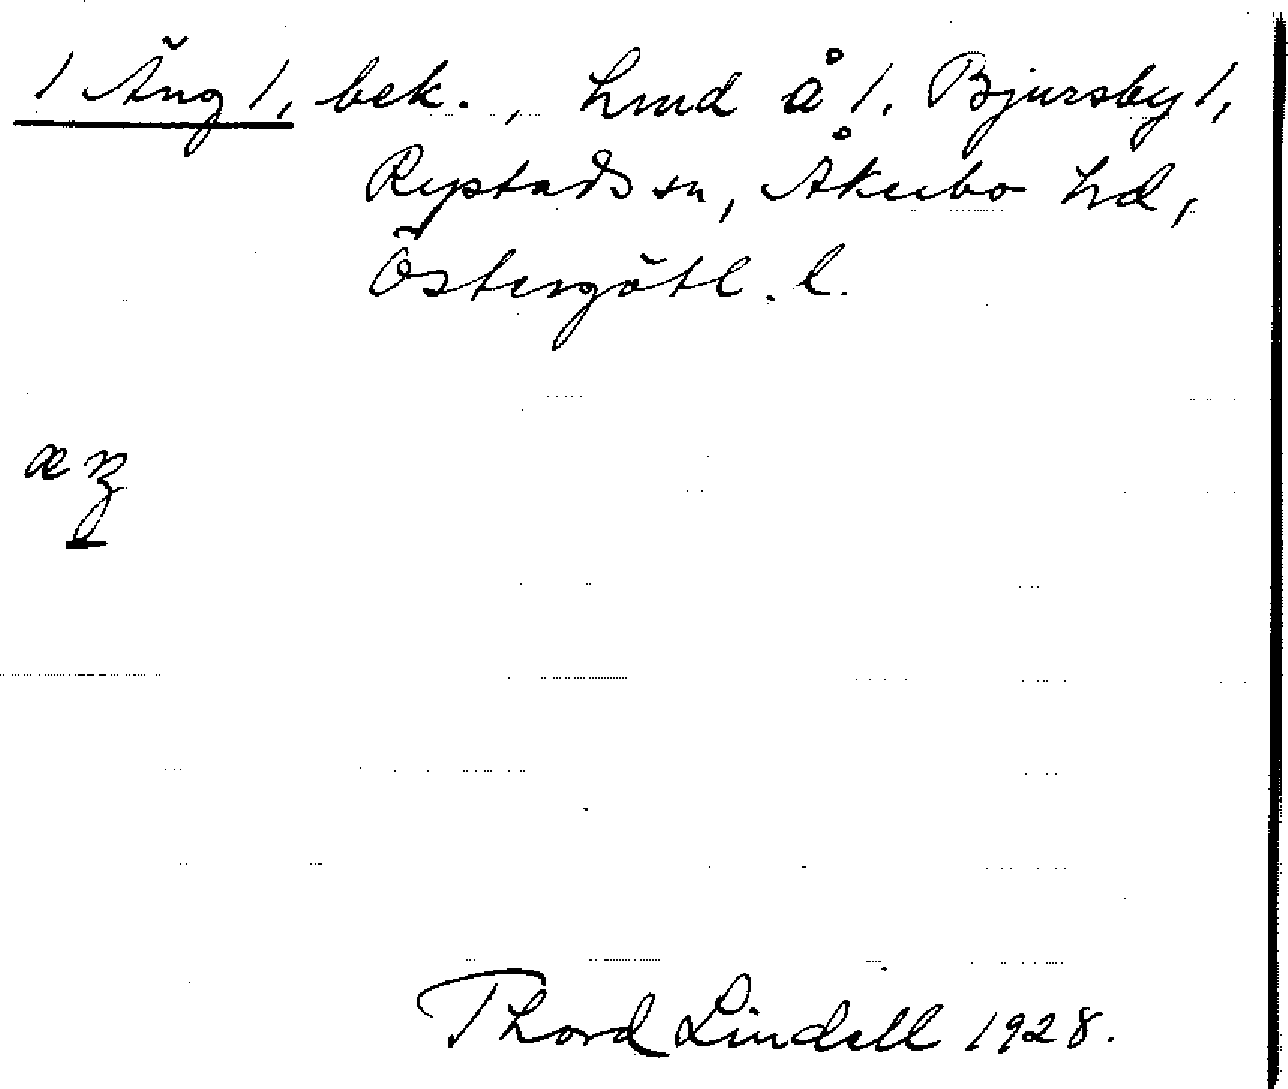 1 Äng 1, bek., hmd å 1. Bjursby 1,
Rystads sn, Åkerbo hd,
Östergötl. l.
æŋ
Thord Lindell 1928.